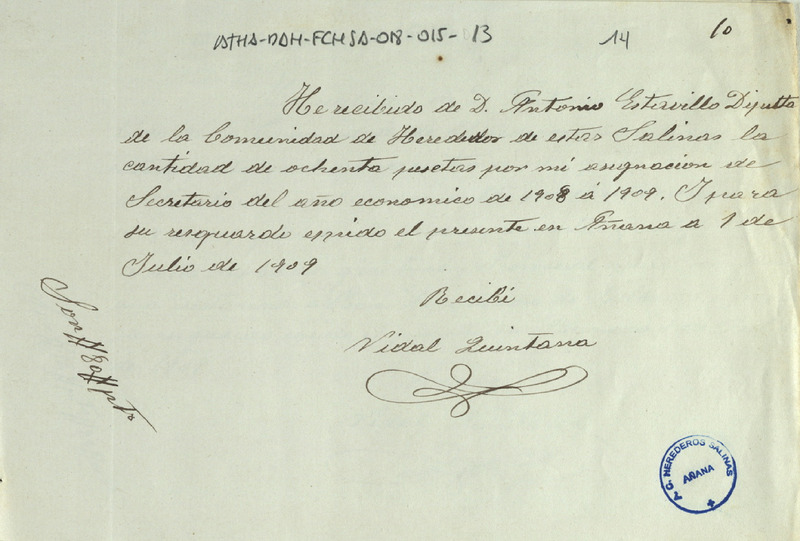 ATHA-DAH-FCHSA-018-015-13
14
10
He recibido de D. Antonio Estavillo Diputto
de la Comunidad de Herededor de estas Salinas la
cantidad de ochenta pesetas por mi asignacion de
Secretario del año economico de 1908 á 1909. I para
su resguardo espido el presente en Añana a 1 de
Julio de 1909
Recibí
Vidal Quintana
Son #80# pts
A.C. HEREDEROS SALINAS
AÑANA